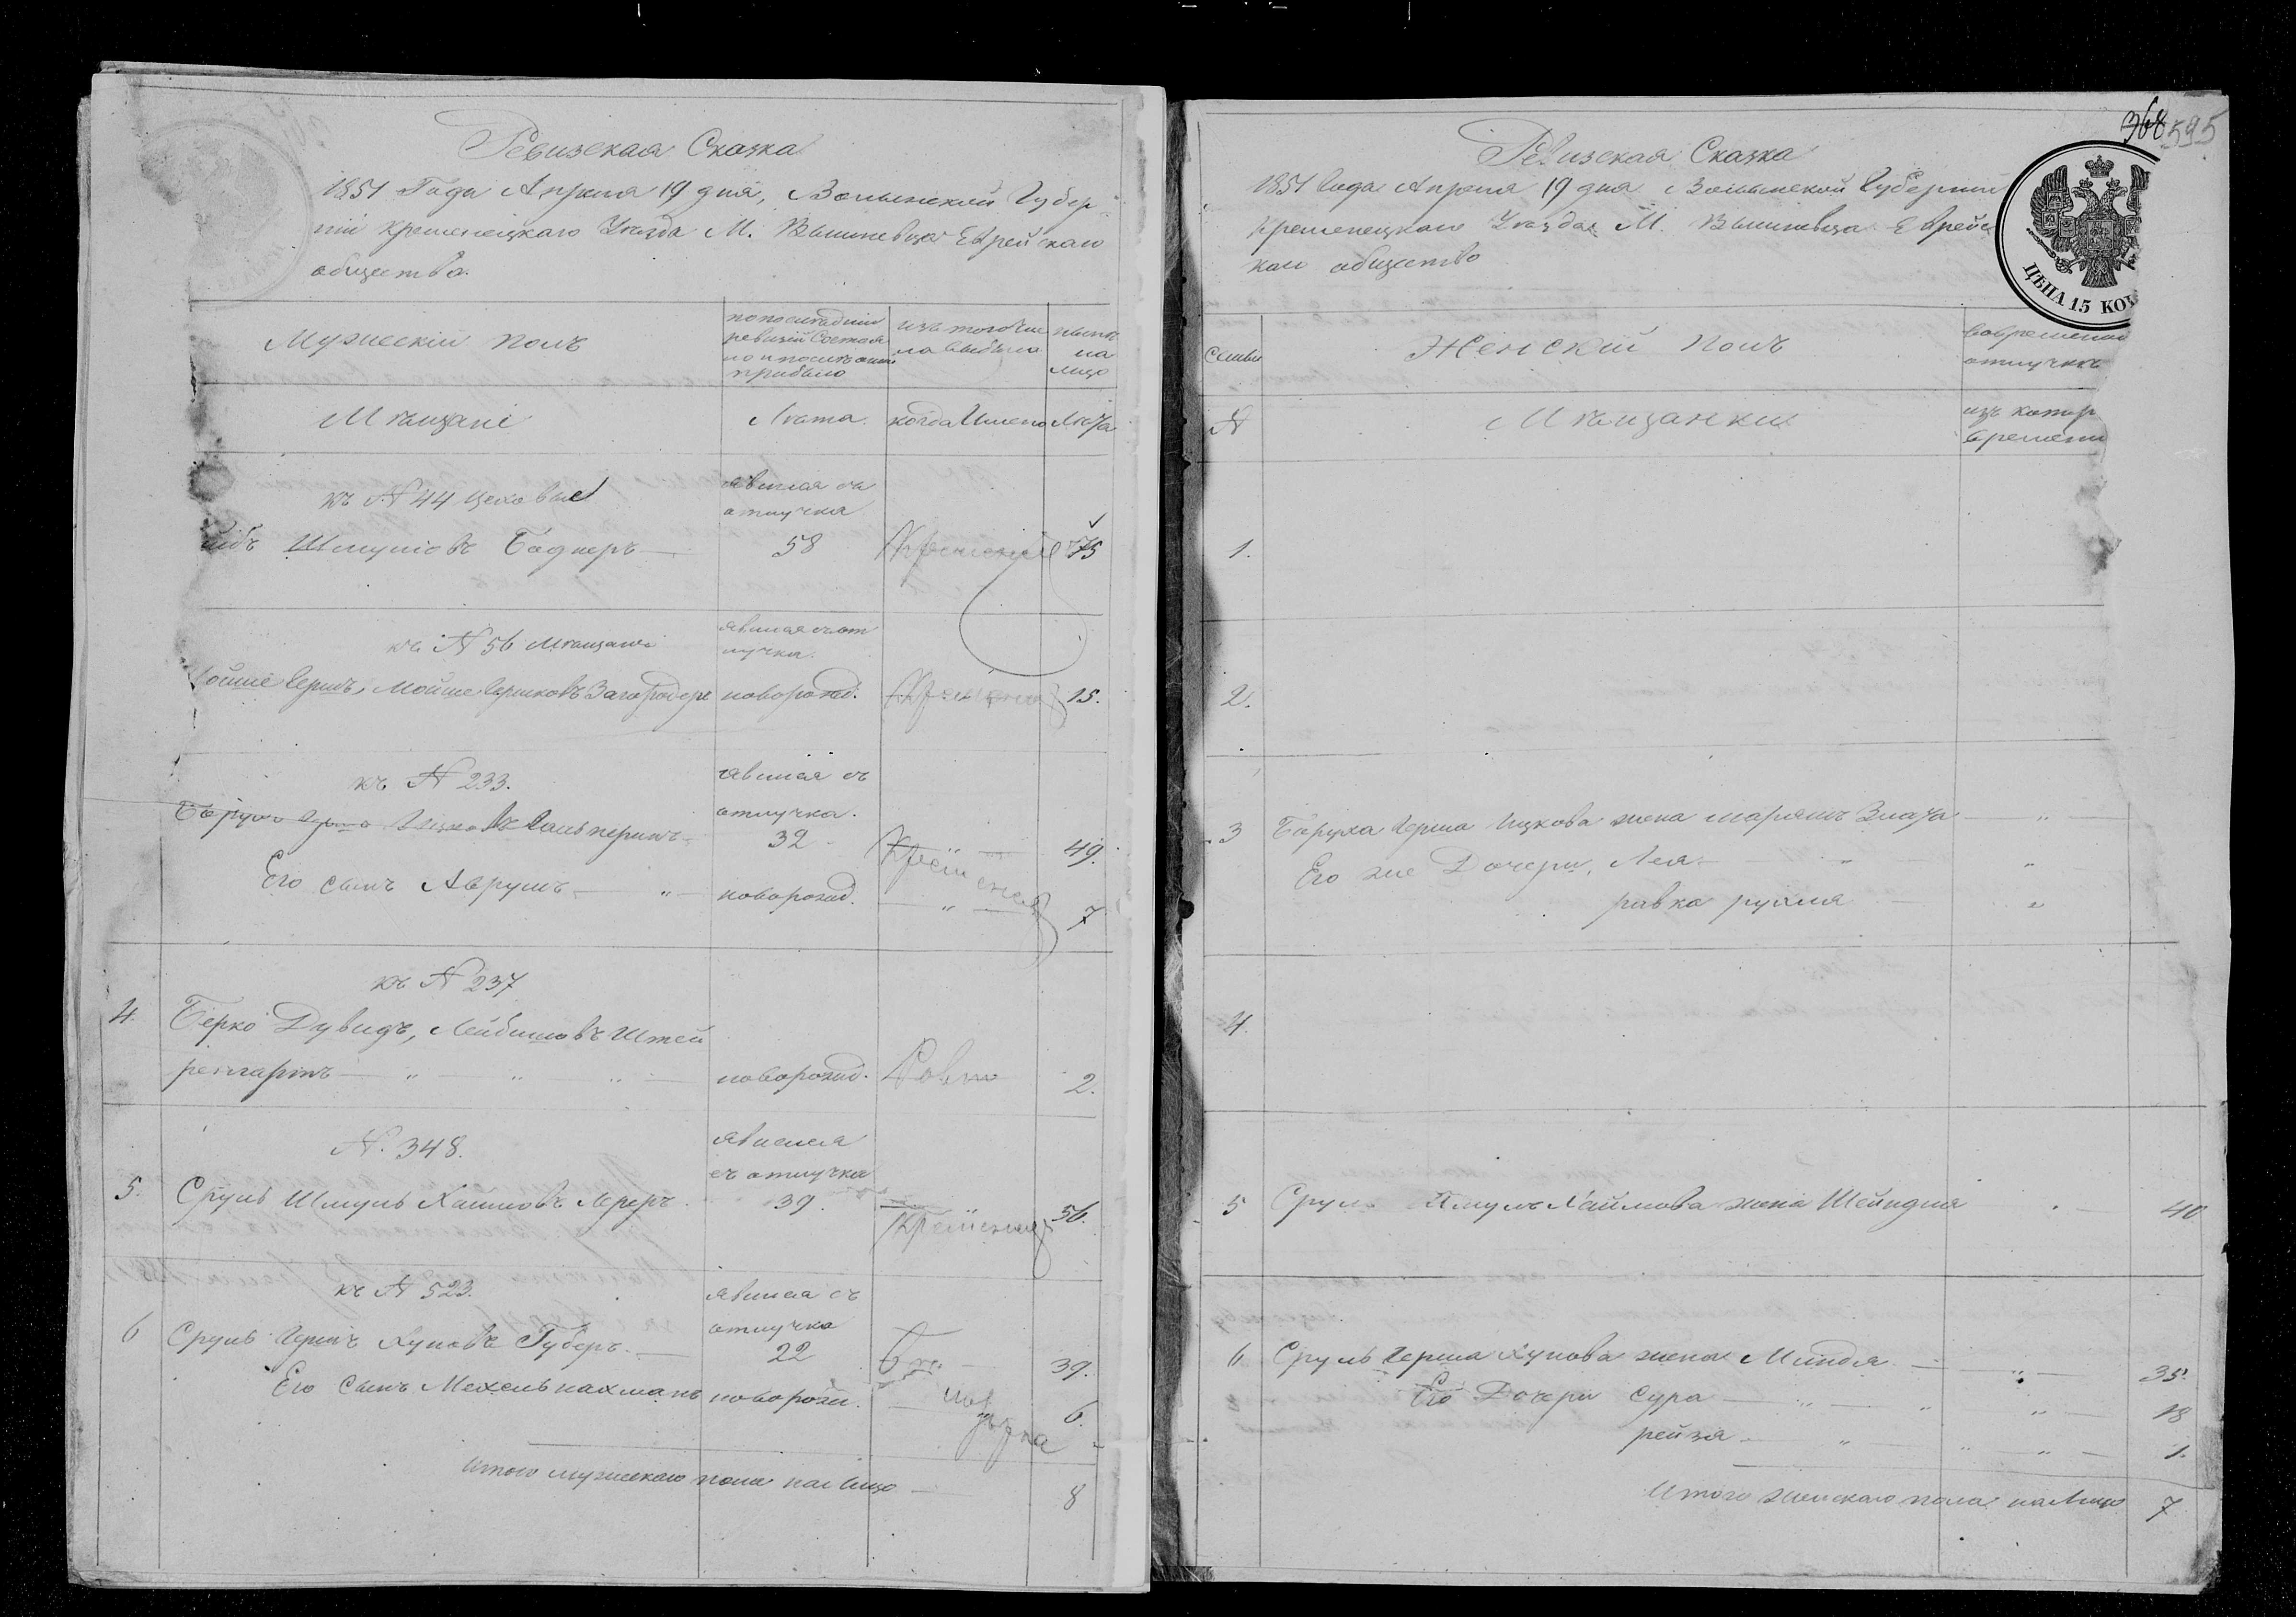 Ревизская Сказка
1851 Года Апреля 19 дня, Волынской Губер
ніи Кременецкаго Уезда М. Вышневца Еврейскаго
общества.
Мужескій полъ
по последній
ревизіи Состоя
ло и после оной
прибыло
изъ того чис
ла выбыло
ныне
на
лицо
Мѣщане
Лета
когда Имено
Лета
къ № 44 цеховые
явился съ
отлучки
Шмуліовъ Боднеръ
58
Кременец
75
къ № 56 Мещане
явился съ от
лучки.
Гершъ, Мойше Гершковъ Загородеръ
новорожд.
Кременец
15.
къ № 233.
явился съ
отлучки.
Борухъ Герш Ицковъ Гальперинъ
32
Кременец
49.
Его сынъ Аврумъ
новорожд.
7
къ № 237
4. Берко Дувидъ, Лейбишовъ Штей
ренгартъ
новорожд.
Ровно
2.
№. 348.
явился
съ отлучки
5. Сруль Шмуль Хаимовъ Лереръ
39.
Кременец
56.
къ № 523.
явился съ
отлучки
6 Сруль Гершъ Хуновъ Губеръ
22
39.
Его Сынъ Мехель нахманъ
новорож.
6.
Итого мужескаго пола на лицо
8
368 595
Ревизская Сказка
1851 Года Апреля 19 дня Волынской Губерніи
Кременецкаго Уезда М. Вышневца Еврейс
каго общества
ЦѢНА 15 КОП
Семьи
Женскій полъ
во временной
отлучке
№
Мѣщанки
изъ котор
времени
1.
2.
3 Боруха Герша Ицкова жена Марьямъ Злата
Его же Дочери, Лея
ривка рухля
4.
5 Сруль Шмуль Хаимова жена Шейндля
40
6 Сруль Герша Хунова жена Миндля
35.
Его Дочери Сура
18
рейзя
1.
Итого женскаго пола на Лицо
7